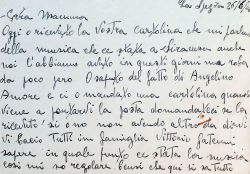 La Spezia 26/6/
Cara Mamma
Oggi o ricevuto la Vostra cartolina che mi parlava
della musica che ce stata a chiramer anche
noi l'abbiamo avuto in questi giorni ma roba
da poco però O saputo del fatto di Angelino
Amore e ci o mandato una cartolina quando
viene a portardi la posta domandateci se la
ricevuto si o no non avendo altro da dirvi
Vi bacio Tutti in famiglia Vittorio fatemi
sapere in quale fronte ce stata la musica
così mi so regolare bensì che qui si sa tutto